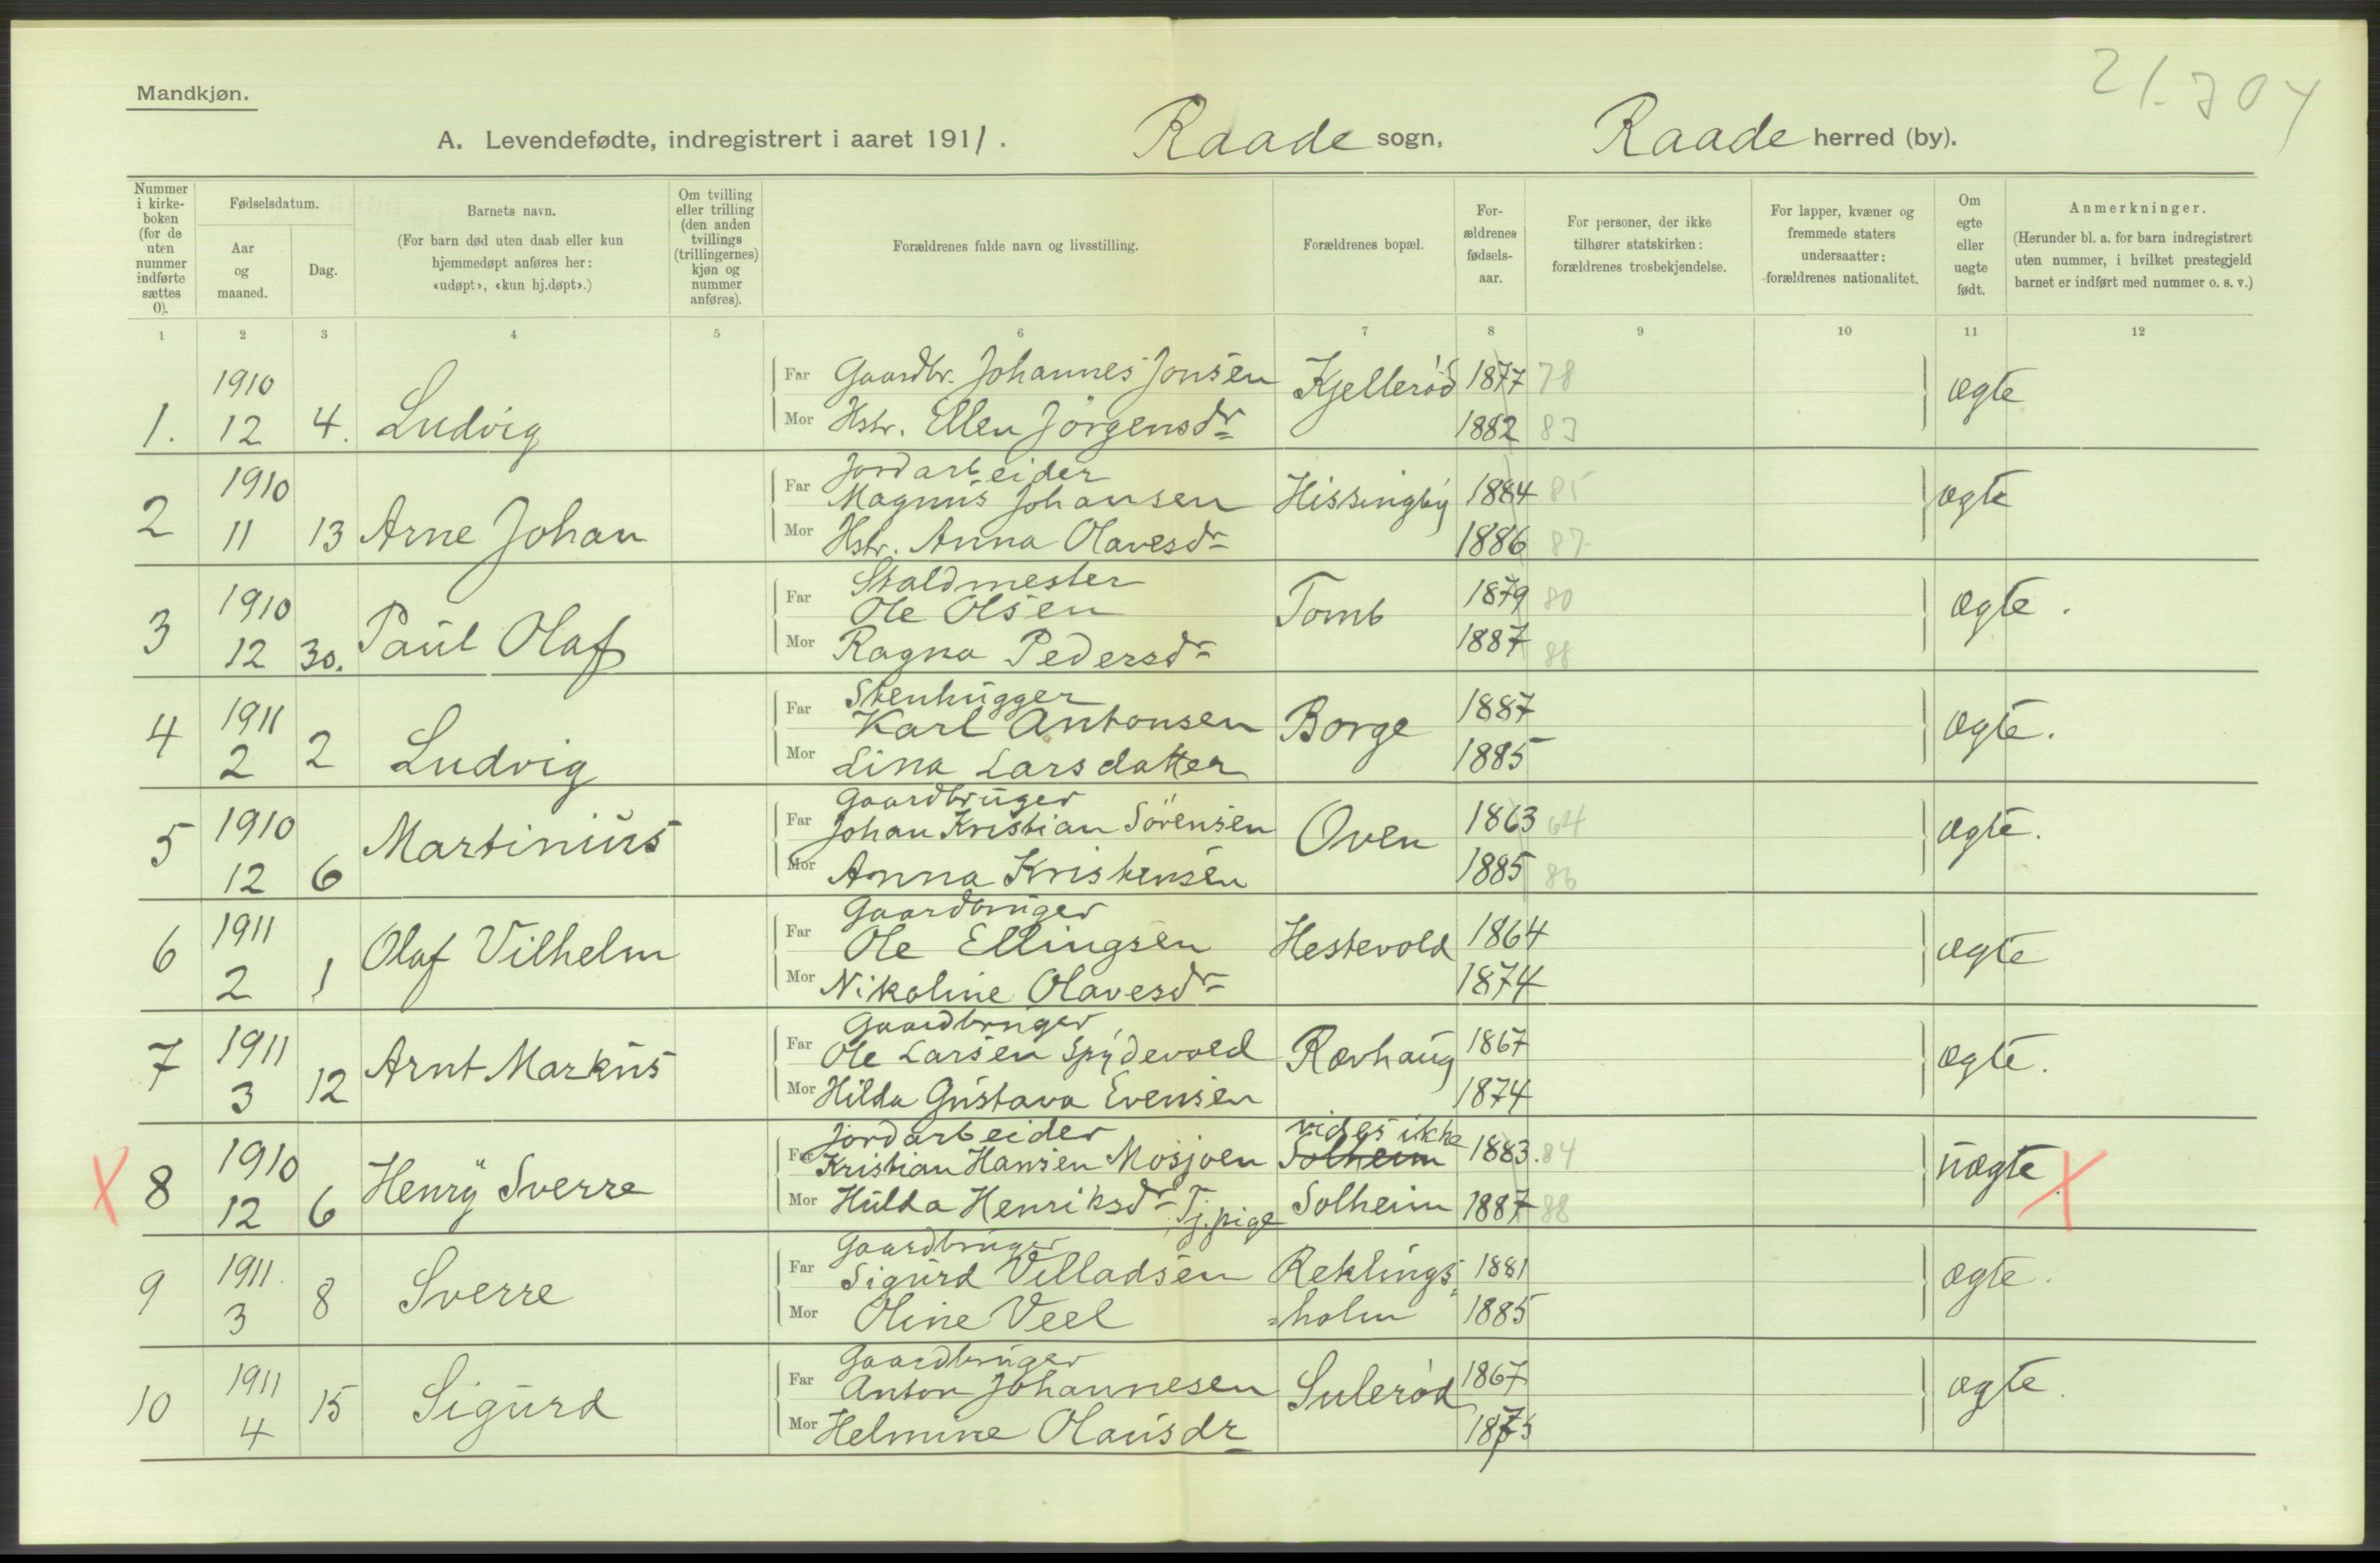 21.704
Mandkjøn.
A. Levendefødte, indregistrert i aaret 1911. Raade sogn, Raade herred (by).
Nummer i kirke-boken (for de uten nummer indførte sættes 0).
Fødselsdatum.
Aar og maaned.
Dag.
Barnets navn.
(For barn død uten daab eller kun hjemmedøpt anføres her: «udøpt», «kun hj.døpt».)
Om tvilling eller trilling (den anden tvillings (trillingernes) kjøn og nummer anføres).
Forældrenes fulde navn og livsstilling.
Forældrenes bopæl.
For-ældrenes fødsels-aar.
For personer, der ikke tilhører statskirken: forældrenes trosbekjendelse.
For lapper, kvæner og fremmede staters undersaatter: forældrenes nationalitet.
Om egte eller uegte født.
Anmerkninger.
(Herunder bl. a. for barn indregistrert uten nummer, i hvilket prestegjeld barnet er indført med nummer o. s. v.)
1 2 3 4 5 6 7 8 9 10 11 12
1. 1910 12 4. Ludvig
Far Gaardbr. Johannes Jonsen Kjellerød 1877 78 ægte
Mor Hstr. Ellen Jørgensdr 1882 83
2 1910 11 13 Arne Johan
Jordarbeider
Far Magnus Johansen Hissingby 1884 85 ægte
Mor Hstr. Anna Olavesdr 1886 87
3 1910 12 30. Paul Olaf
Staldmester
Far Ole Olsen Tomb 1879 80 ægte.
Mor Ragna Pedersdr 1887 88
4 1911 2 2 Ludvig
Stenhugger
Far Karl Antonsen Borge 1887 ægte.
Mor Lina Larsdatter 1885
5 1910 12 6 Martinius
Gaardbruger
Far Johan Kristian Sørensen Oven 1863 64 ægte.
Mor Anna Kristensen 1885 86
6 1911 2 1 Olaf Vilhelm
Gaardbruger
Far Ole Ellingsen Hestevold 1864 ægte
Mor Nikoline Olavesdr 1874
7 1911 3 12 Arnt Markus
Gaardbruger
Far Ole Larsen Spydevold Rævhaug 1867 ægte.
Mor Hilda Gustava Evensen 1874
X 8 1910 12 6 Henry Sverre
Jordarbeider vides ikke
Far Kristian Hansen Mosjoen Solheim 1883. 84 uægte. X
Mor Hulda Henriksdr Tj.pige Solheim 1887 88
9 1911. 3 8 Sverre
Gaardbruger
Far Sigurd Villadsen Reklings- 1881 ægte.
Mor Oline Veel =holm 1885
10 1911 4 15 Sigurd
Gaardbruger
Far Anton Johannesen Sulerød 1867 ægte.
Mor Helmine Olausdr 1875